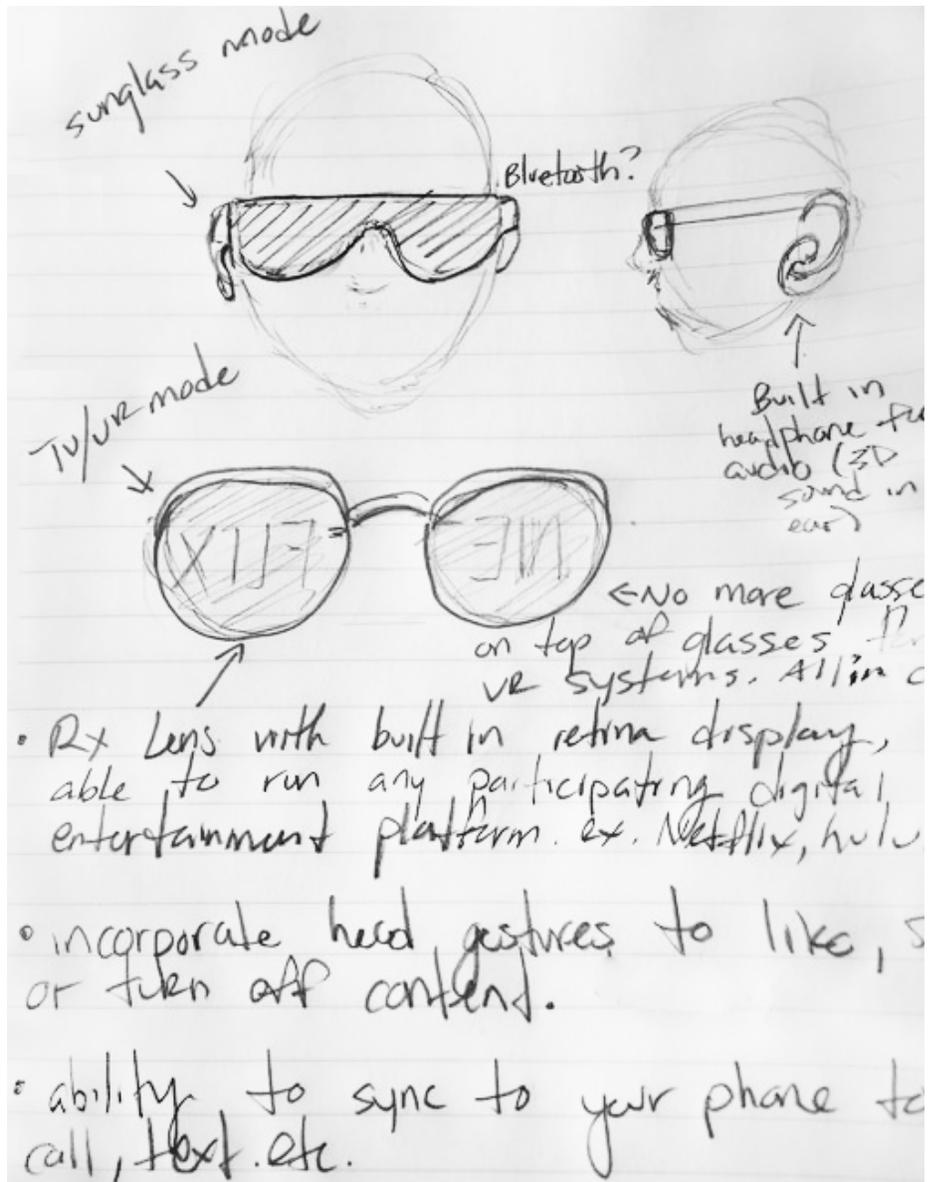 sunglass mode
Bluetooth?
Built in
headphone for
audio (3D
sound in
ear)
TV/VR mode
XIJF
TƎN
←No more glasse
on top of glasses for
VR systems. All in
• Rx Lens with built in retina display,
able to run any participating digital
entertainment platform. ex. Netflix, hulu
• incorporate head gestures to like,
or turn off content.
• ability to sync to your phone to
call, text. etc.